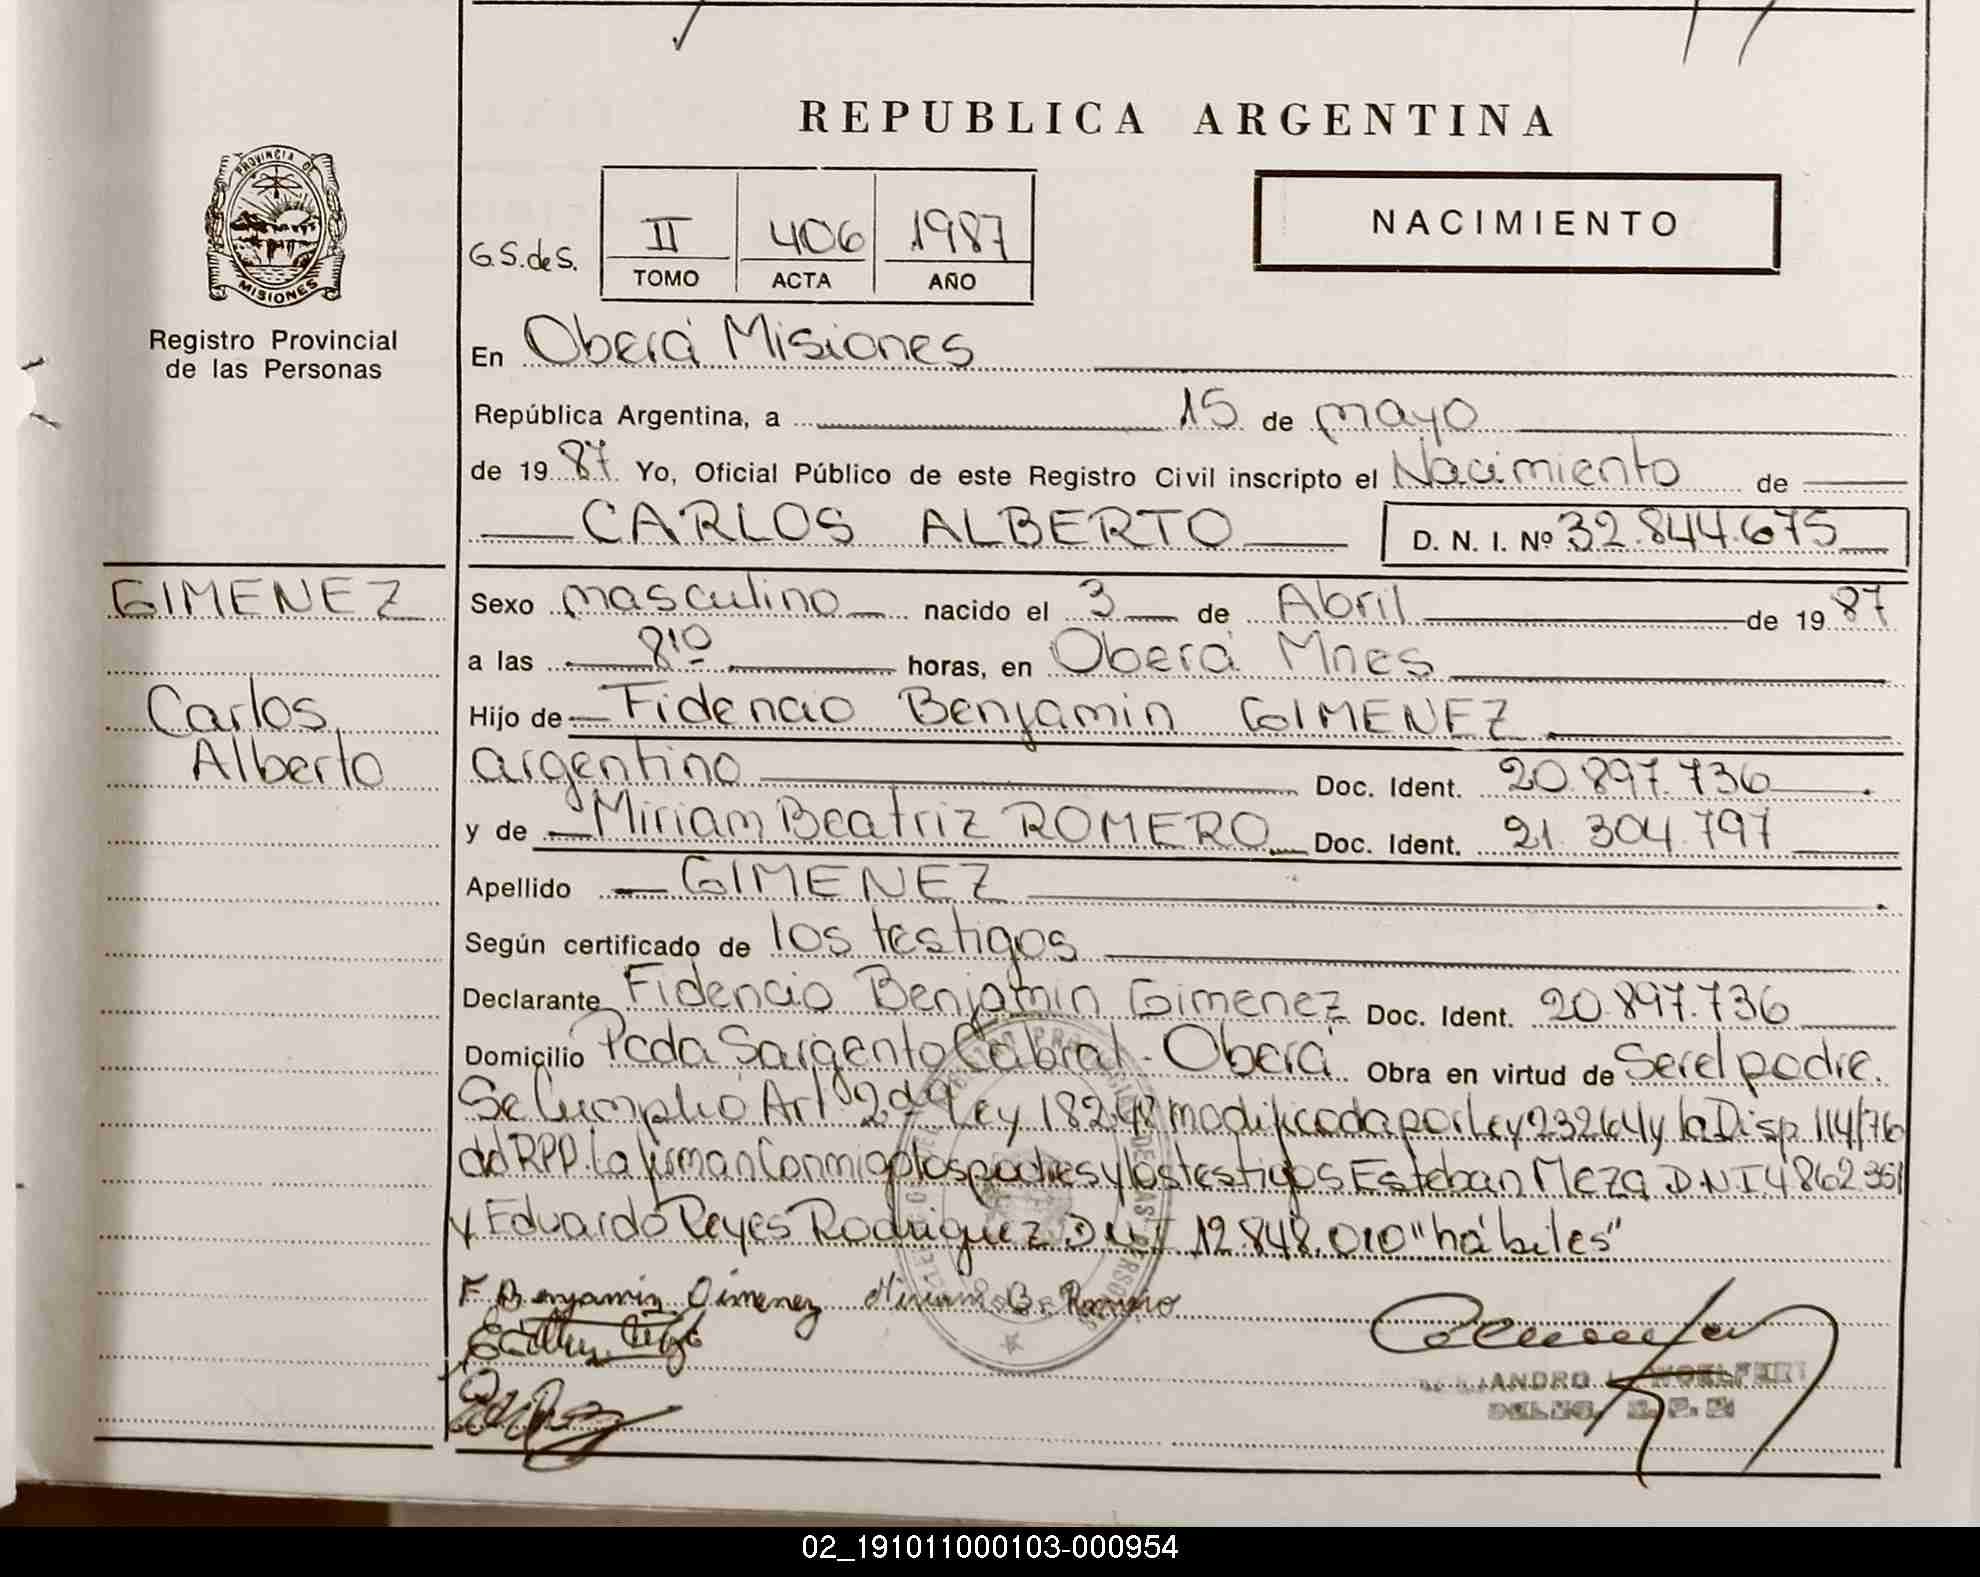 REPUBLICA ARGENTINA
PROVINCIA DE
MISIONES
Registro Provincial
de las Personas
NACIMIENTO
G.S.deS.
II 406 1987
TOMO ACTA AÑO
En Oberá Misiones
República Argentina, a 15 de mayo
de 19 87 Yo, Oficial Público de este Registro Civil inscripto el Nacimiento de
CARLOS ALBERTO D. N. I. Nº 32.844.675
GIMENEZ
Carlos
Alberto
Sexo masculino nacido el 3 de Abril de 19 87
a las 8'10 horas, en Oberá Mnes
Hijo de Fidencio Benjamin GIMENEZ
argentino Doc. Ident. 20.897.736
y de Miriam Beatriz ROMERO Doc. Ident. 21.304.797
Apellido GIMENEZ
Según certificado de los testigos
Declarante Fidencio Benjamin Gimenez Doc. Ident. 20.897.736
Domicilio Pcda Sargento Cabral - Oberá Obra en virtud de ser el padre.
Se Cumplió Art 2do Ley 18248 modificada por Ley 23264 y la Disp 114/76
del RPP. La firman Conmigo los padres y los testigos Esteban Meza D.N.I 4862351
y Eduardo Reyes Rodriguez DNI 12.848.010 "hábiles"
F. Benjamin Gimenez Miriam B. Romero
ANDRO WOELFERT
02_191011000103-000954